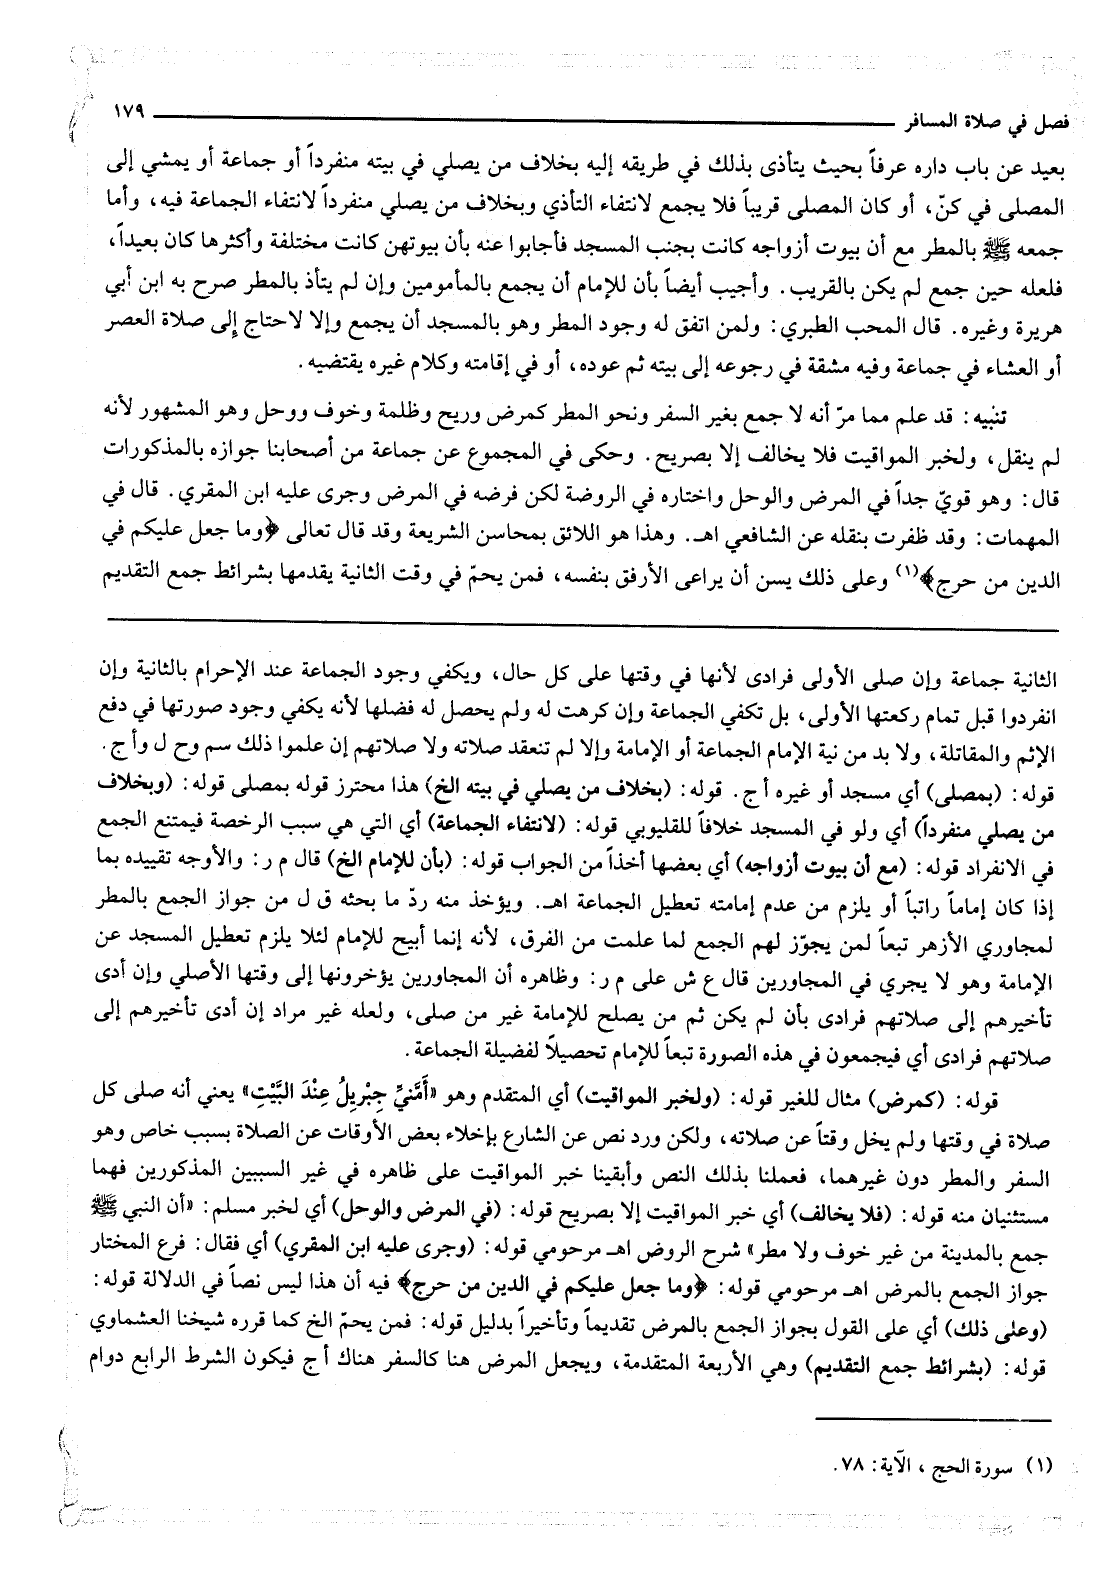 فصل في صلاة المسافر ١٧٩
بعيد عن باب داره عرفاً بحيث يتأذى بذلك في طريقه إليه بخلاف من يصلي في بيته منفرداً أو جماعة أو يمشي إلى
المصلى في كنّ، أو كان المصلى قريباً فلا يجمع لانتفاء التأذي وبخلاف من يصلي منفرداً لانتفاء الجماعة فيه، وأما
جمعه ﷺ بالمطر مع أن بيوت أزواجه كانت بجنب المسجد فأجابوا عنه بأن بيوتهن كانت مختلفة وأكثرها كان بعيداً،
فلعله حين جمع لم يكن بالقريب. وأجيب أيضاً بأن للإمام أن يجمع بالمأمومين وإن لم يتأذ بالمطر صرح به ابن أبي
هريرة وغيره. قال المحب الطبري: ولمن اتفق له وجود المطر وهو بالمسجد أن يجمع وإلا لاحتاج إلى صلاة العصر
أو العشاء في جماعة وفيه مشقة في رجوعه إلى بيته ثم عوده، أو في إقامته وكلام غيره يقتضيه.
تنبيه: قد علم مما مرّ أنه لا جمع بغير السفر ونحو المطر كمرض وريح وظلمة وخوف ووحل وهو المشهور لأنه
لم ينقل، ولخبر المواقيت فلا يخالف إلا بصريح. وحكى في المجموع عن جماعة من أصحابنا جوازه بالمذكورات
قال: وهو قويّ جداً في المرض والوحل واختاره في الروضة لكن فرضه في المرض وجرى عليه ابن المقري. قال في
المهمات: وقد ظفرت بنقله عن الشافعي اهـ. وهذا هو اللائق بمحاسن الشريعة وقد قال تعالى ﴿وما جعل عليكم في
الدين من حرج﴾(١) وعلى ذلك يسن أن يراعى الأرفق بنفسه، فمن يحمّ في وقت الثانية يقدمها بشرائط جمع التقديم
الثانية جماعة وإن صلى الأولى فرادى لأنها في وقتها على كل حال، ويكفي وجود الجماعة عند الإحرام بالثانية وإن
انفردوا قبل تمام ركعتها الأولى، بل تكفي الجماعة وإن كرهت له ولم يحصل له فضلها لأنه يكفي وجود صورتها في دفع
الإثم والمقاتلة، ولا بد من نية الإمام الجماعة أو الإمامة وإلا لم تنعقد صلاته ولا صلاتهم إن علموا ذلك سم وح ل وأ ج.
قوله: (بمصلى) أي مسجد أو غيره أ ج. قوله: (بخلاف من يصلي في بيته الخ) هذا محترز قوله بمصلى قوله: (وبخلاف
من يصلي منفرداً) أي ولو في المسجد خلافاً للقليوبي قوله: (لانتفاء الجماعة) أي التي هي سبب الرخصة فيمتنع الجمع
في الانفراد قوله: (مع أن بيوت أزواجه) أي بعضها أخذاً من الجواب قوله: (بأن للإمام الخ) قال م ر: والأوجه تقييده بما
إذا كان إماماً راتباً أو يلزم من عدم إمامته تعطيل الجماعة اهـ. ويؤخذ منه ردّ ما بحثه ق ل من جواز الجمع بالمطر
لمجاوري الأزهر تبعاً لمن يجوّز لهم الجمع لما علمت من الفرق، لأنه إنما أبيح للإمام لئلا يلزم تعطيل المسجد عن
الإمامة وهو لا يجري في المجاورين قال ع ش على م ر: وظاهره أن المجاورين يؤخرونها إلى وقتها الأصلي وإن أدى
تأخيرهم إلى صلاتهم فرادى بأن لم يكن ثم من يصلح للإمامة غير من صلى، ولعله غير مراد إن أدى تأخيرهم إلى
صلاتهم فرادى أي فيجمعون في هذه الصورة تبعاً للإمام تحصيلاً لفضيلة الجماعة.
قوله: (كمرض) مثال للغير قوله: (ولخبر المواقيت) أي المتقدم وهو «أَمَّنيَّ جِبْرِيلُ عِنْدَ البَّيْتِ» يعني أنه صلى كل
صلاة في وقتها ولم يخل وقتاً عن صلاته، ولكن ورد نص عن الشارع بإخلاء بعض الأوقات عن الصلاة بسبب خاص وهو
السفر والمطر دون غيرهما، فعملنا بذلك النص وأبقينا خبر المواقيت على ظاهره في غير السببين المذكورين فهما
مستثنيان منه قوله: (فلا يخالف) أي خبر المواقيت إلا بصريح قوله: (في المرض والوحل) أي لخبر مسلم: «أن النبي ﷺ
جمع بالمدينة من غير خوف ولا مطر» شرح الروض اهـ مرحومي قوله: (وجرى عليه ابن المقري) أي فقال: فرع المختار
جواز الجمع بالمرض اهـ مرحومي قوله: ﴿وما جعل عليكم في الدين من حرج﴾ فيه أن هذا ليس نصاً في الدلالة قوله:
(وعلى ذلك) أي على القول بجواز الجمع بالمرض تقديماً وتأخيراً بدليل قوله: فمن يحمّ الخ كما قرره شيخنا العشماوي
قوله: (بشرائط جمع التقديم) وهي الأربعة المتقدمة، ويجعل المرض هنا كالسفر هناك أ ج فيكون الشرط الرابع دوام
(١) سورة الحج ، الآية: ٧٨.